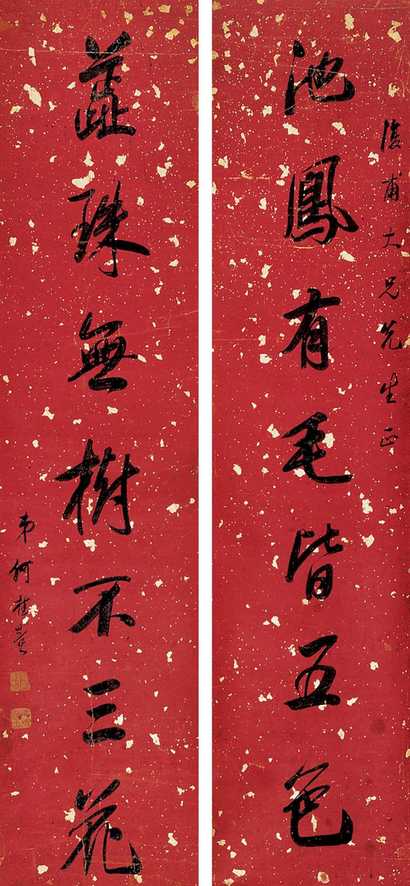 甫大兄先生正
池鳳有毛皆五色
蕋珠無樹不三花
弟何桂